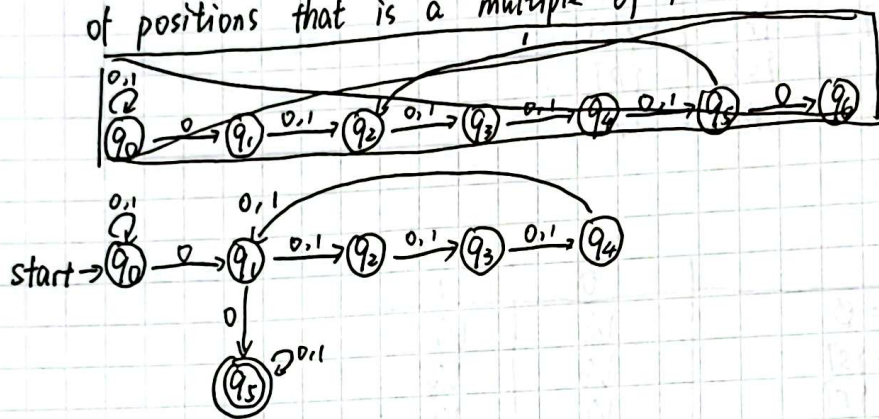 of positions that is a multiple of
1
0,1
q0 0 q1 0,1 q2 0,1 q3 0,1 q4 0,1 q5 0 q6
0,1 0,1
start → q0 0 q1 0,1 q2 0,1 q3 0,1 q4
0
q5 0,1